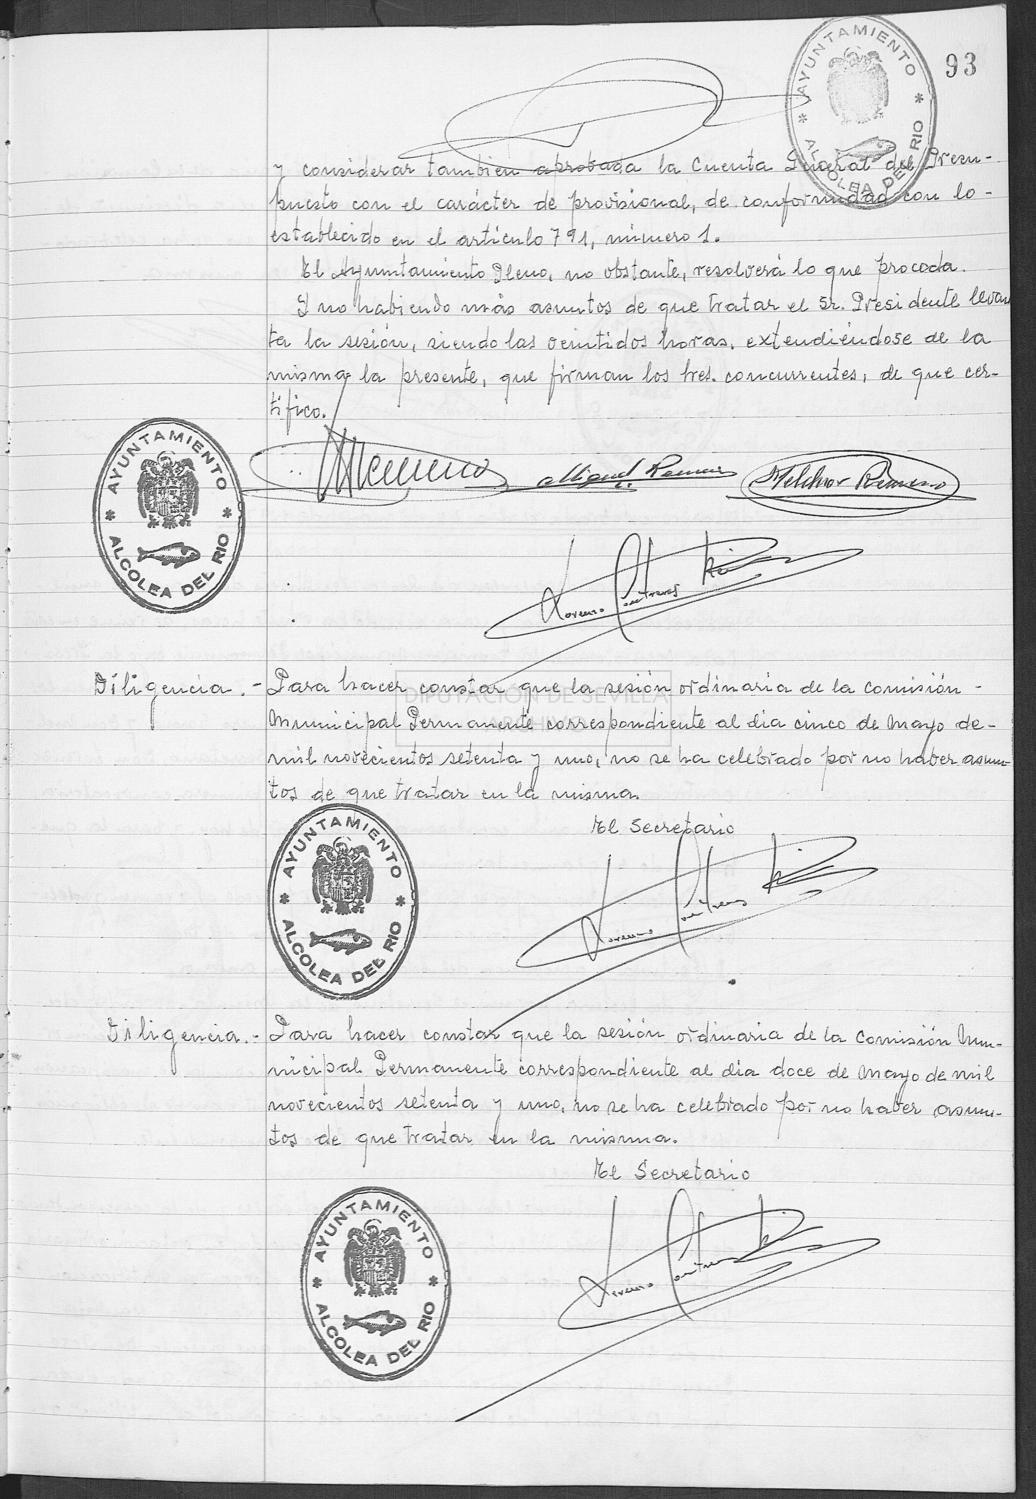 AYUNTAMIENTO
* ALCOLEA DEL RIO *
93
y considerar también aprobada la Cuenta General del Presu-
puesto con el carácter de provisional, de conformidad con lo-
establecido en el artículo 791, número 1.
El Ayuntamiento Pleno, no obstante, resolverá lo que proceda.
Y no habiendo más asuntos de que tratar el Sr. Presidente levan
ta la sesión, siendo las veintidos horas, extendiéndose de la
misma la presente, que firman los tres. concurrentes, de que cer-
tifico.
AYUNTAMIENTO
* ALCOLEA DEL RIO *
Miguel
Melchor Romero
Lorenzo Contreras
DIPUTACIÓN DE SEVILLA
Diligencia.- Para hacer constar que la sesión ordinaria de la Comisión-
Municipal Permanente correspondiente al dia cinco de Mayo de-
mil novecientos setenta y uno, no se ha celebrado por no haber asun-
tos de que tratar en la misma.
El Secretario
AYUNTAMIENTO
* ALCOLEA DEL RIO *
Lorenzo Contreras
Diligencia.- Para hacer constar que la sesión ordinaria de la Comisión Mu-
nicipal Permanente correspondiente al dia doce de Mayo de mil
novecientos setenta y uno, no se ha celebrado por no haber asun-
tos de que tratar en la misma.
El Secretario
AYUNTAMIENTO
* ALCOLEA DEL RIO *
Lorenzo Contreras